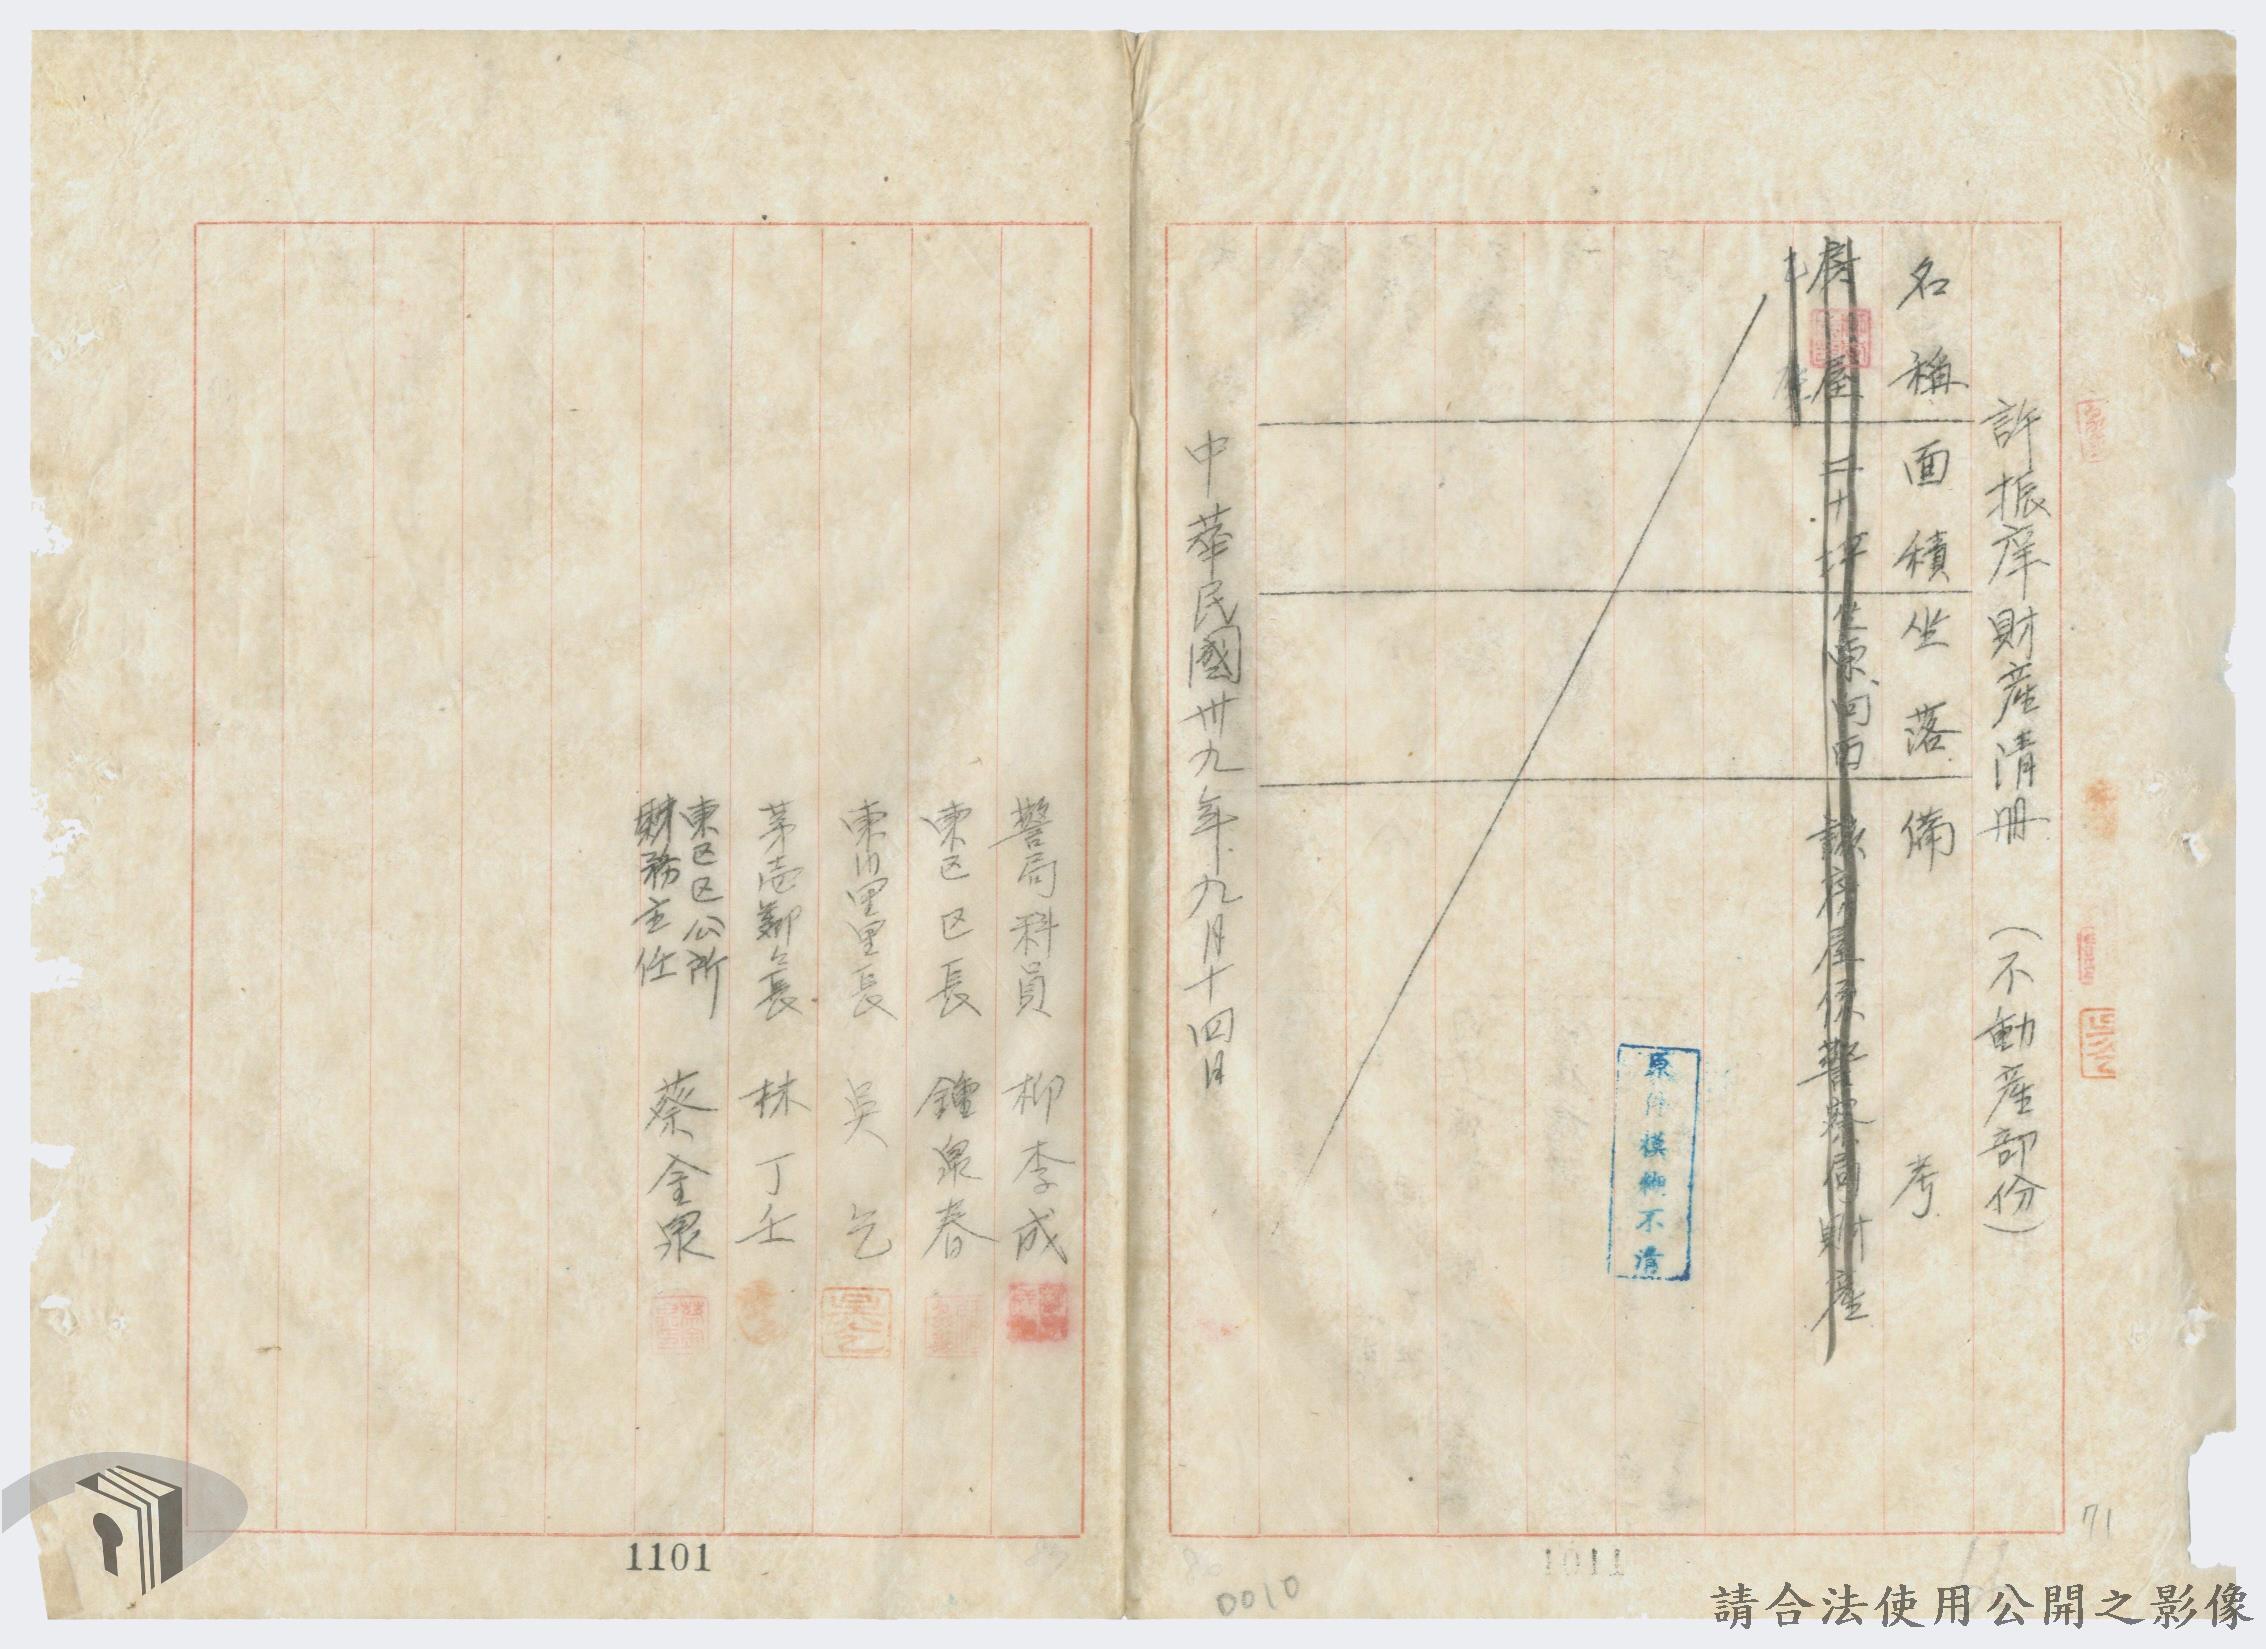 許振庠財產清册 (不動產部份)
名稱 面積 坐落 備考
房屋 二十坪 坐東向西 該房屋係警察局財產
原件模糊不清
中華民國卅九年九月十四日
警局科員 柳李成
東区区長 鍾泉春
東川里里長 吳乞
茅壱鄰鄰長 林丁壬
東区区公所
財務主任 蔡全泉
1101
0010
71
請合法使用公開之影像